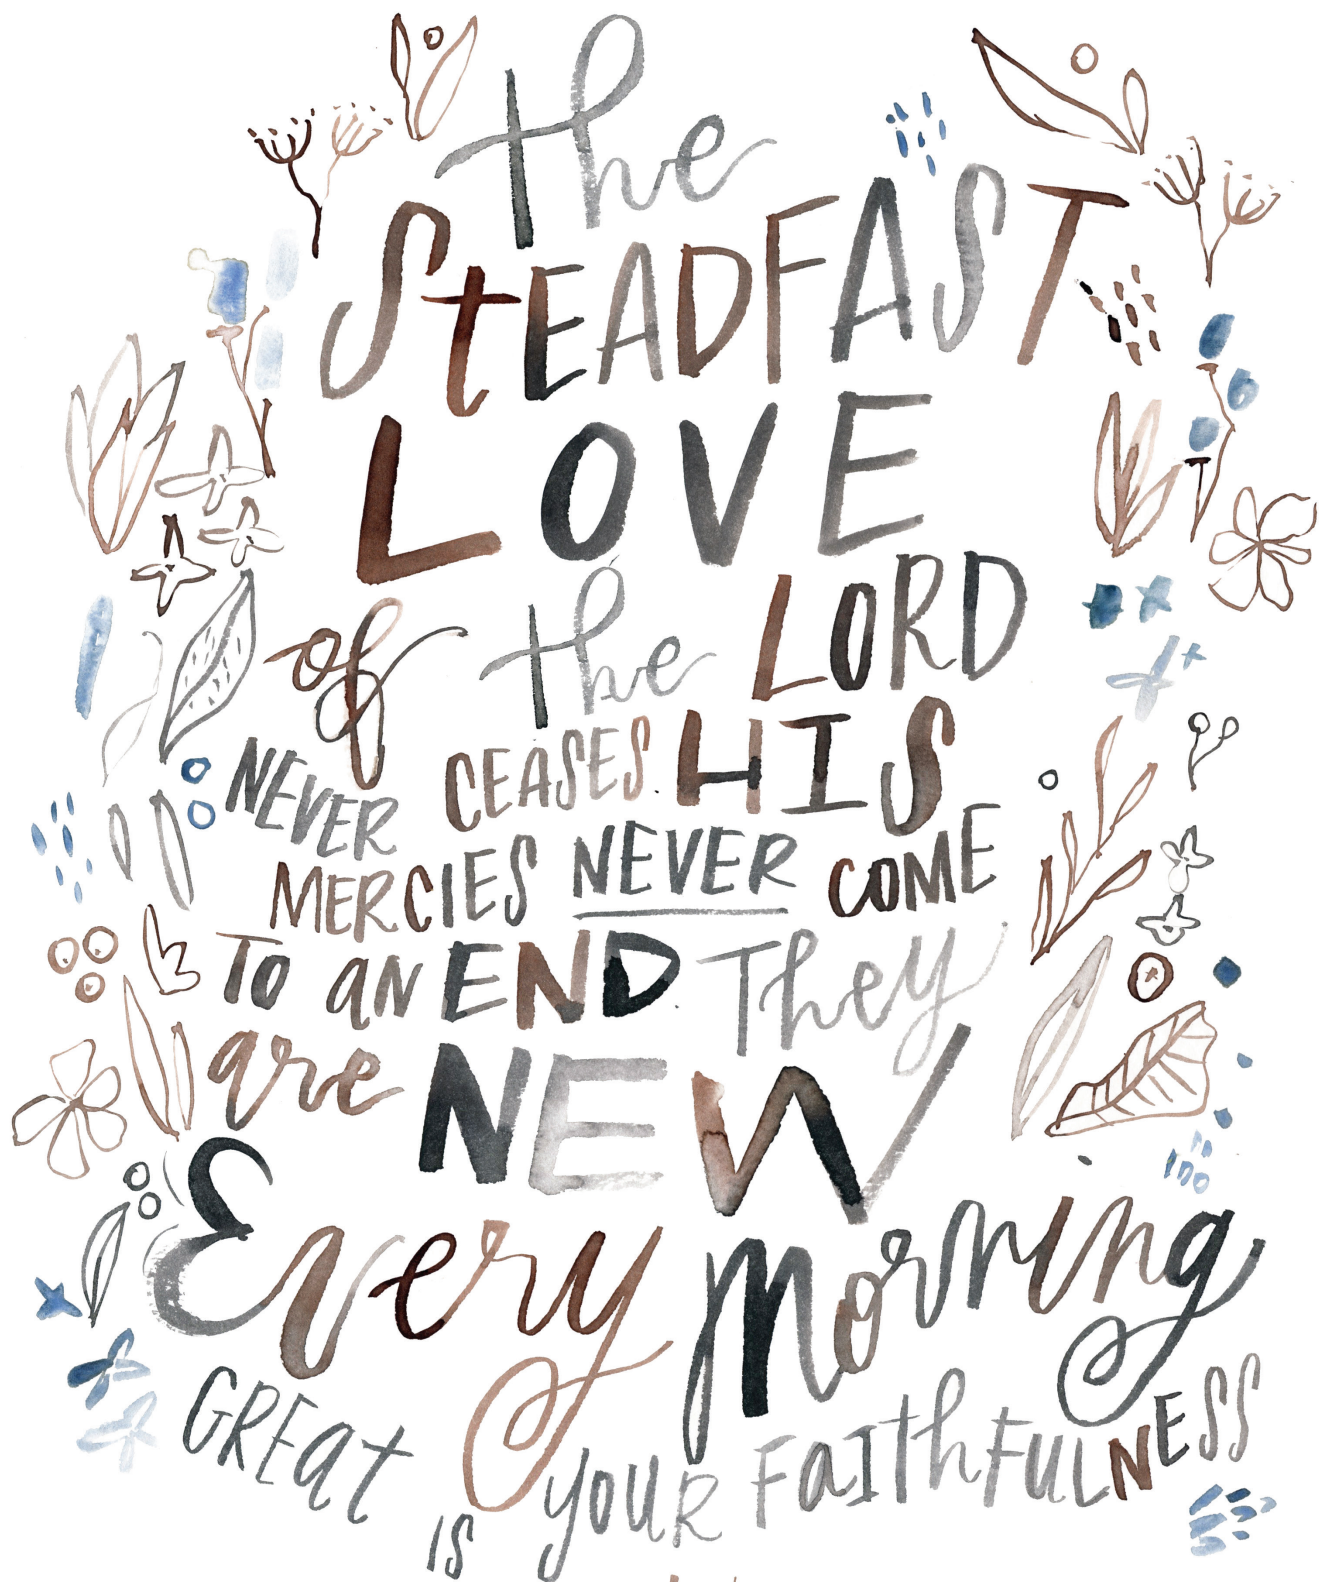 the
StEADFAST
LOVE
of the LORD
NEVER CEASES. HIS
MERCIES NEVER COME
TO aN END. They
are NEW
Every Morning
GREat IS YOUR FaIthFULNESS